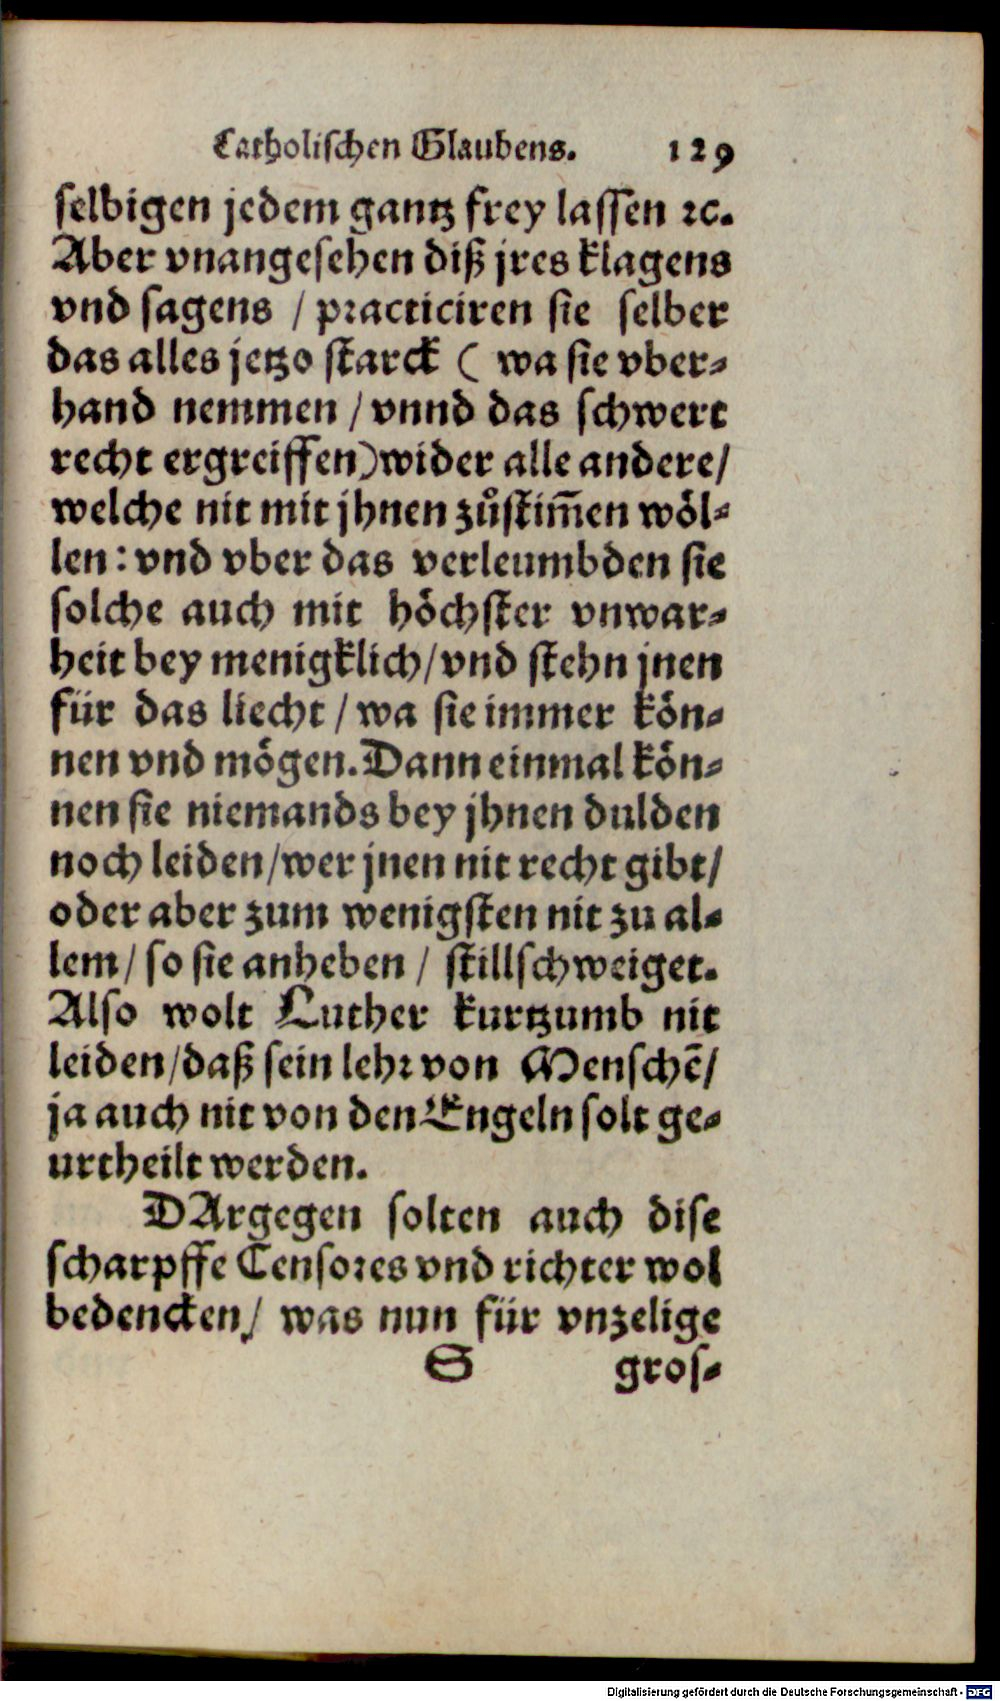 Catholischen Glaubens. 129
selbigen jedem gantz frey lassen ꝛc.
Aber vnangesehen diß jres klagens
vnd sagens / practiciren sie selber
das alles jetzo starck ( wa sie vber⸗
hand nemmen / vnnd das schwert
recht ergreiffen) wider alle andere/
welche nit mit jhnen zůstim̃en wöl⸗
len: vnd vber das verleumbden sie
solche auch mit höchster vnwar⸗
heit bey menigklich/ vnd stehn jnen
für das liecht / wa sie immer kön⸗
nen vnd mögen. Dann einmal kön⸗
nen sie niemands bey jhnen dulden
noch leiden/ wer jnen nit recht gibt/
oder aber zum wenigsten nit zu al⸗
lem/ so sie anheben / stillschweiget.
Also wolt Luther kurtzumb nit
leiden/ daß sein lehr von Menschẽ/
ja auch nit von den Engeln solt ge⸗
urtheilt werden.
DArgegen solten auch dise
scharpffe Censores vnd richter wol
bedencken/ was nun für vnzelige
S gros⸗
Digitalisierung gefördert durch die Deutsche Forschungsgemeinschaft - DFG